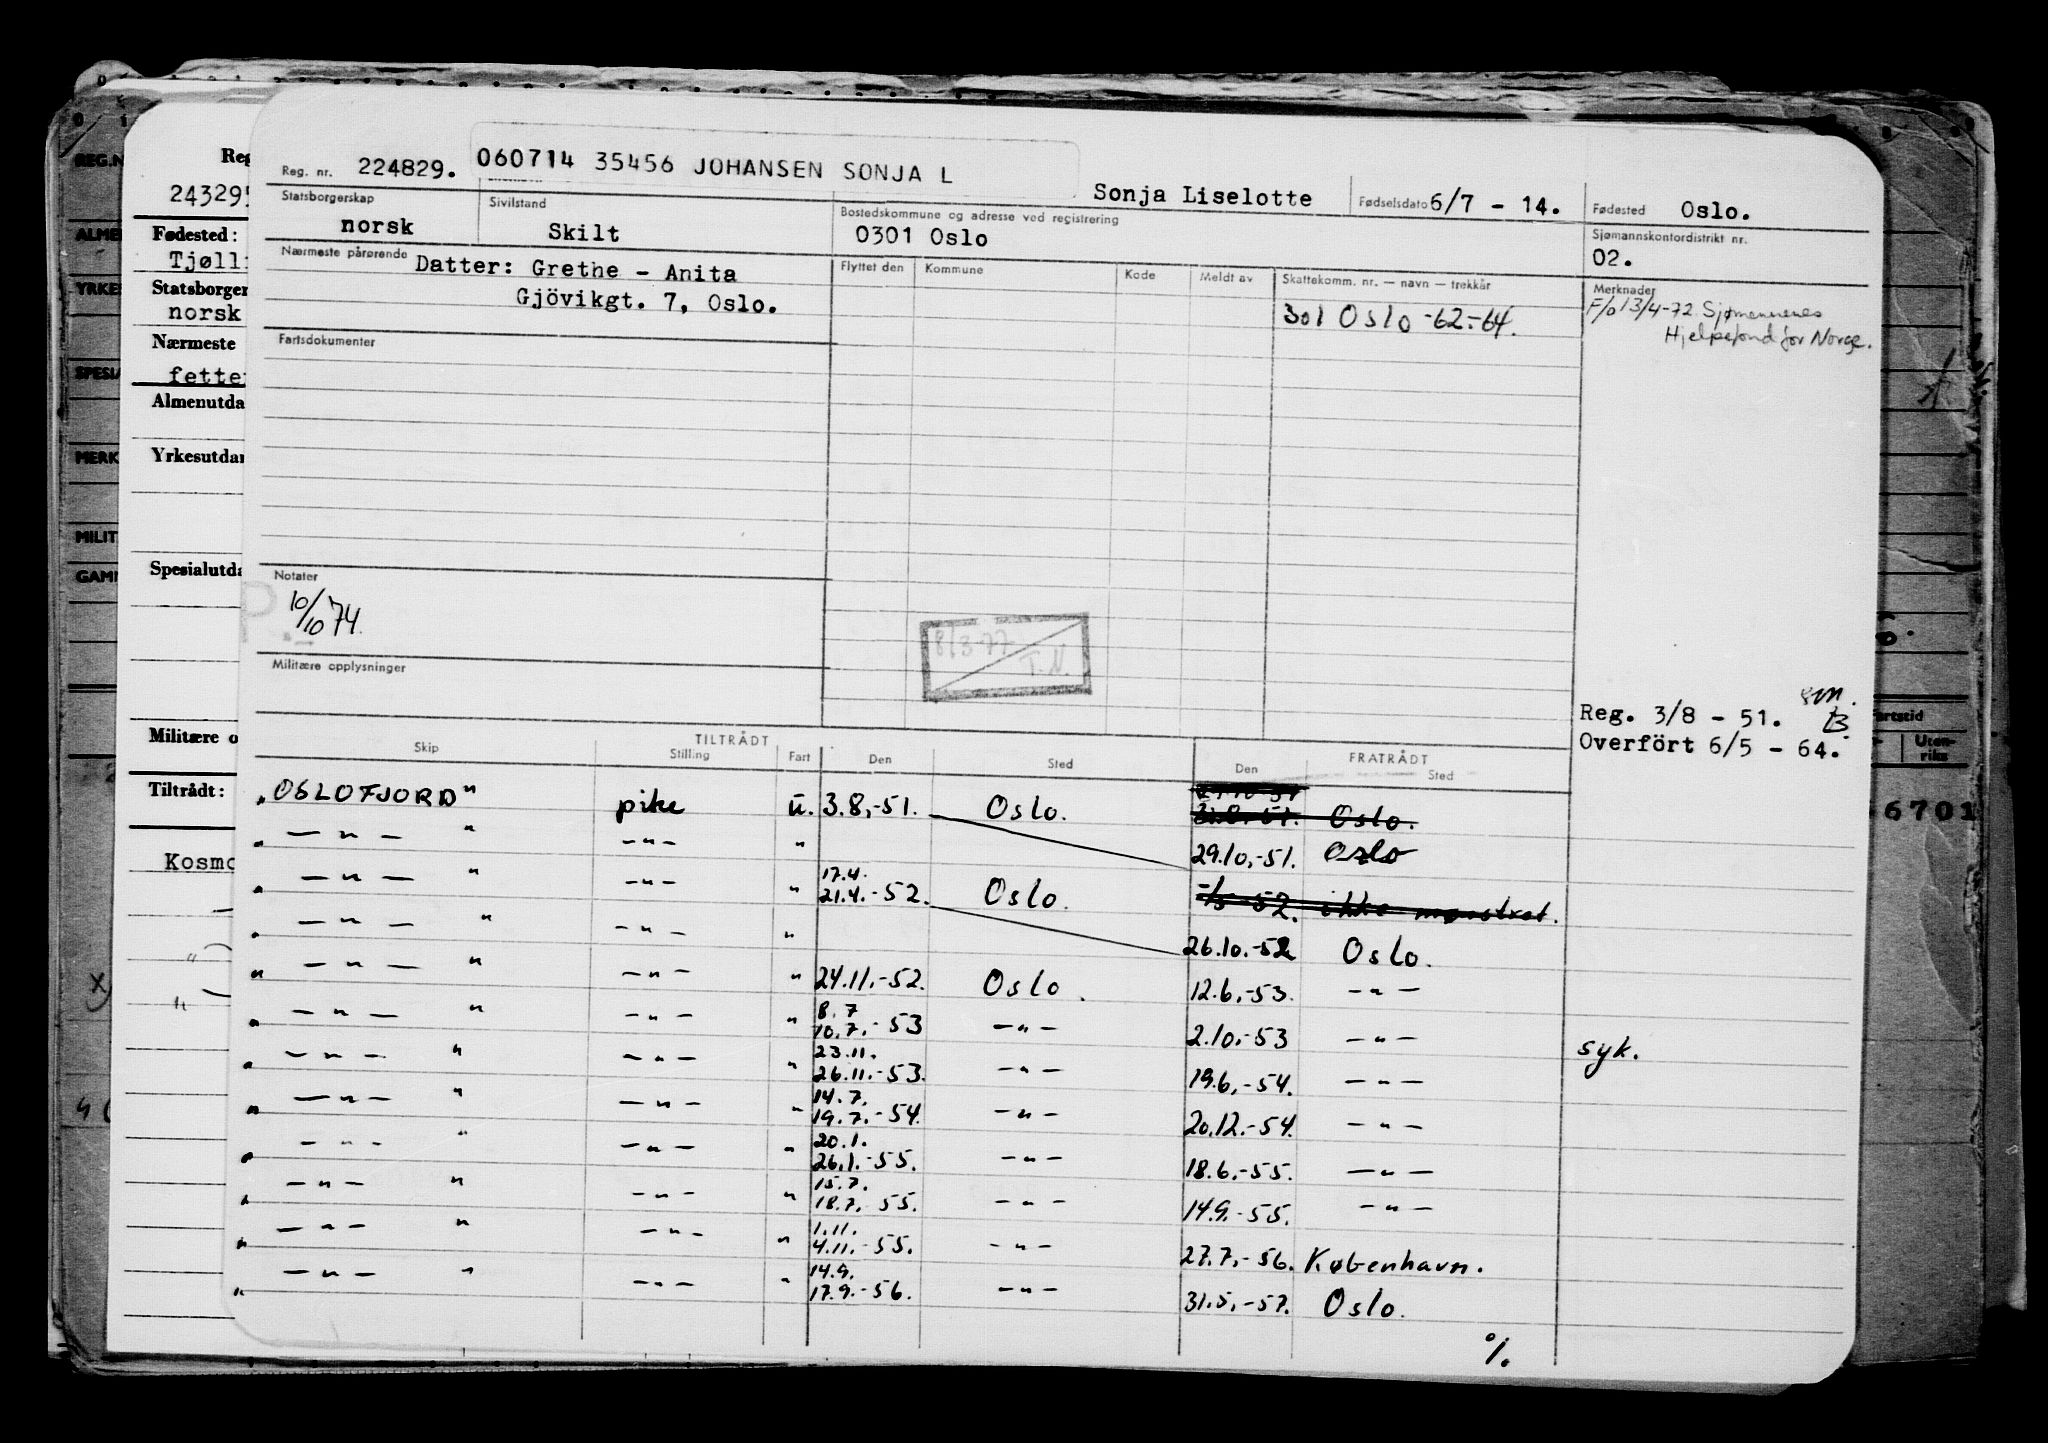 Reg. nr. 224829. 060714 35456 JOHANSEN SONJA L Sonja Liselotte Fødselsdato 6/7 - 14. Fødested Oslo.
Statsborgerskap norsk Sivilstand Skilt Bostedskommune og adresse ved registrering 0301 Oslo Sjømannskontordistrikt nr. 02.
Nærmeste pårørende Datter: Grethe - Anita
Gjövikgt. 7, Oslo.
Flyttet den Kommune Kode Meldt av Skattekomm. nr. — navn — trekkår Merknader
301 Oslo -62-64.
F/o 13/4-72 Sjømennenes
Hjelpefond for Norge.
Fartsdokumenter
Notater
10/10 74.
8/3-77
T.N.
Militære opplysninger
Reg. 3/8 - 51.
Overfört 6/5 - 64.
TILTRÅDT FRATRÅDT
Skip Stilling Fart Den Sted Den Sted
"OSLOFJORD" pike u. 3.8.-51. Oslo. 31.8.-51. Oslo.
" — " — " — " — " 29.10.-51. Oslo
" — " — " — " — " 17.4. 21.4.-52. Oslo. 52. ikke mønstret.
" — " — " — " — " 26.10.-52 Oslo.
" — " — " — " — " 24.11.-52. Oslo. 12.6.-53. — " —
" — " — " — " — " 8.7 10.7.-53 — " — 2.10.-53 — " — syk.
" — " — " — " — " 23.11. 26.11.-53. — " — 19.6.-54. — " —
" — " — " — " — " 14.7. 19.7.-54. — " — 20.12.-54. — " —
" — " — " — " — " 20.1. 26.1.-55. — " — 18.6.-55. — " —
" — " — " — " — " 15.7. 18.7.-55. — " — 14.9.-55. — " —
" — " — " — " — " 1.11. 4.11.-55. — " — 27.7.-56. København.
" — " — " — " — " 14.9. 17.9.-56. — " — 31.5.-57. Oslo.
%.
Reg
24329
Fødested:
Tjøll
Statsborger
norsk
Nærmeste
fetter
Almenutda
Yrkesutdan
Spesialutda
Militære o
Tiltrådt:
Kosmo
REG.N
ALME
YRKES
SPESIA
MERK
MILIT
GAMM
artstid
Uten-
riks
6701